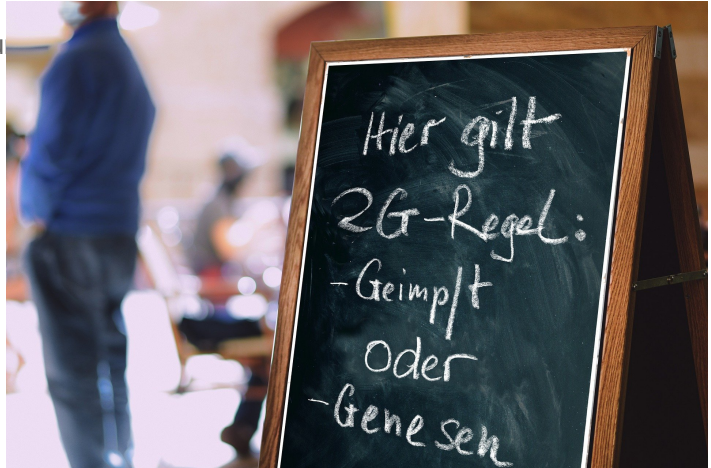 Hier gilt
2G-Regel:
-Geimpft
oder
-Genesen